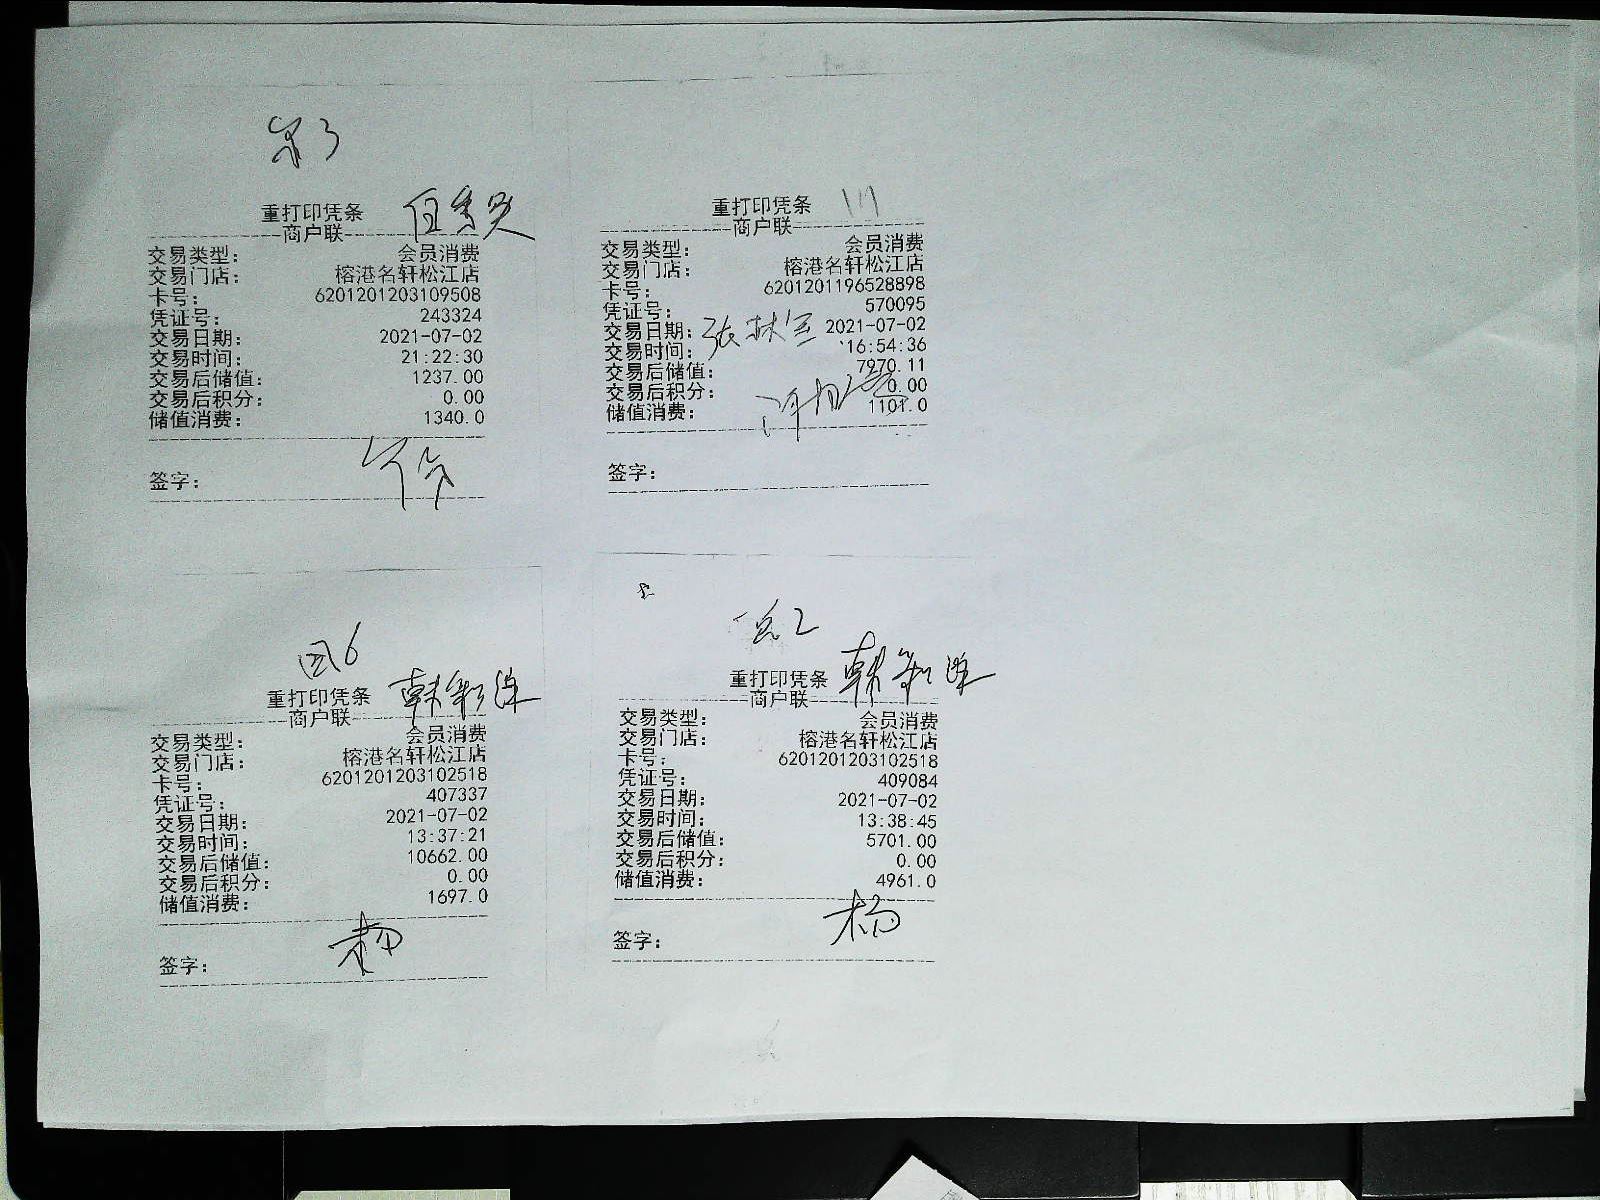 重打印凭条
商户联
交易类型： 会员消费
交易门店： 榕港名轩松江店
卡号： 6201201203109508
凭证号： 243324
交易日期： 2021-07-02
交易时间： 21:22:30
交易后储值： 1237.00
交易后积分： 0.00
储值消费： 1340.0
签字：
重打印凭条
商户联
交易类型： 会员消费
交易门店： 榕港名轩松江店
卡号： 6201201196528898
凭证号： 570095
交易日期： 2021-07-02
交易时间： 16:54:36
交易后储值： 7970.11
交易后积分： 0.00
储值消费： 1101.0
签字：
重打印凭条
商户联
交易类型： 会员消费
交易门店： 榕港名轩松江店
卡号： 6201201203102518
凭证号： 407337
交易日期： 2021-07-02
交易时间： 13:37:21
交易后储值： 10662.00
交易后积分： 0.00
储值消费： 1697.0
杨
签字：
重打印凭条
商户联
交易类型： 会员消费
交易门店： 榕港名轩松江店
卡号： 6201201203102518
凭证号： 409084
交易日期： 2021-07-02
交易时间： 13:38:45
交易后储值： 5701.00
交易后积分： 0.00
储值消费： 4961.0
杨
签字：